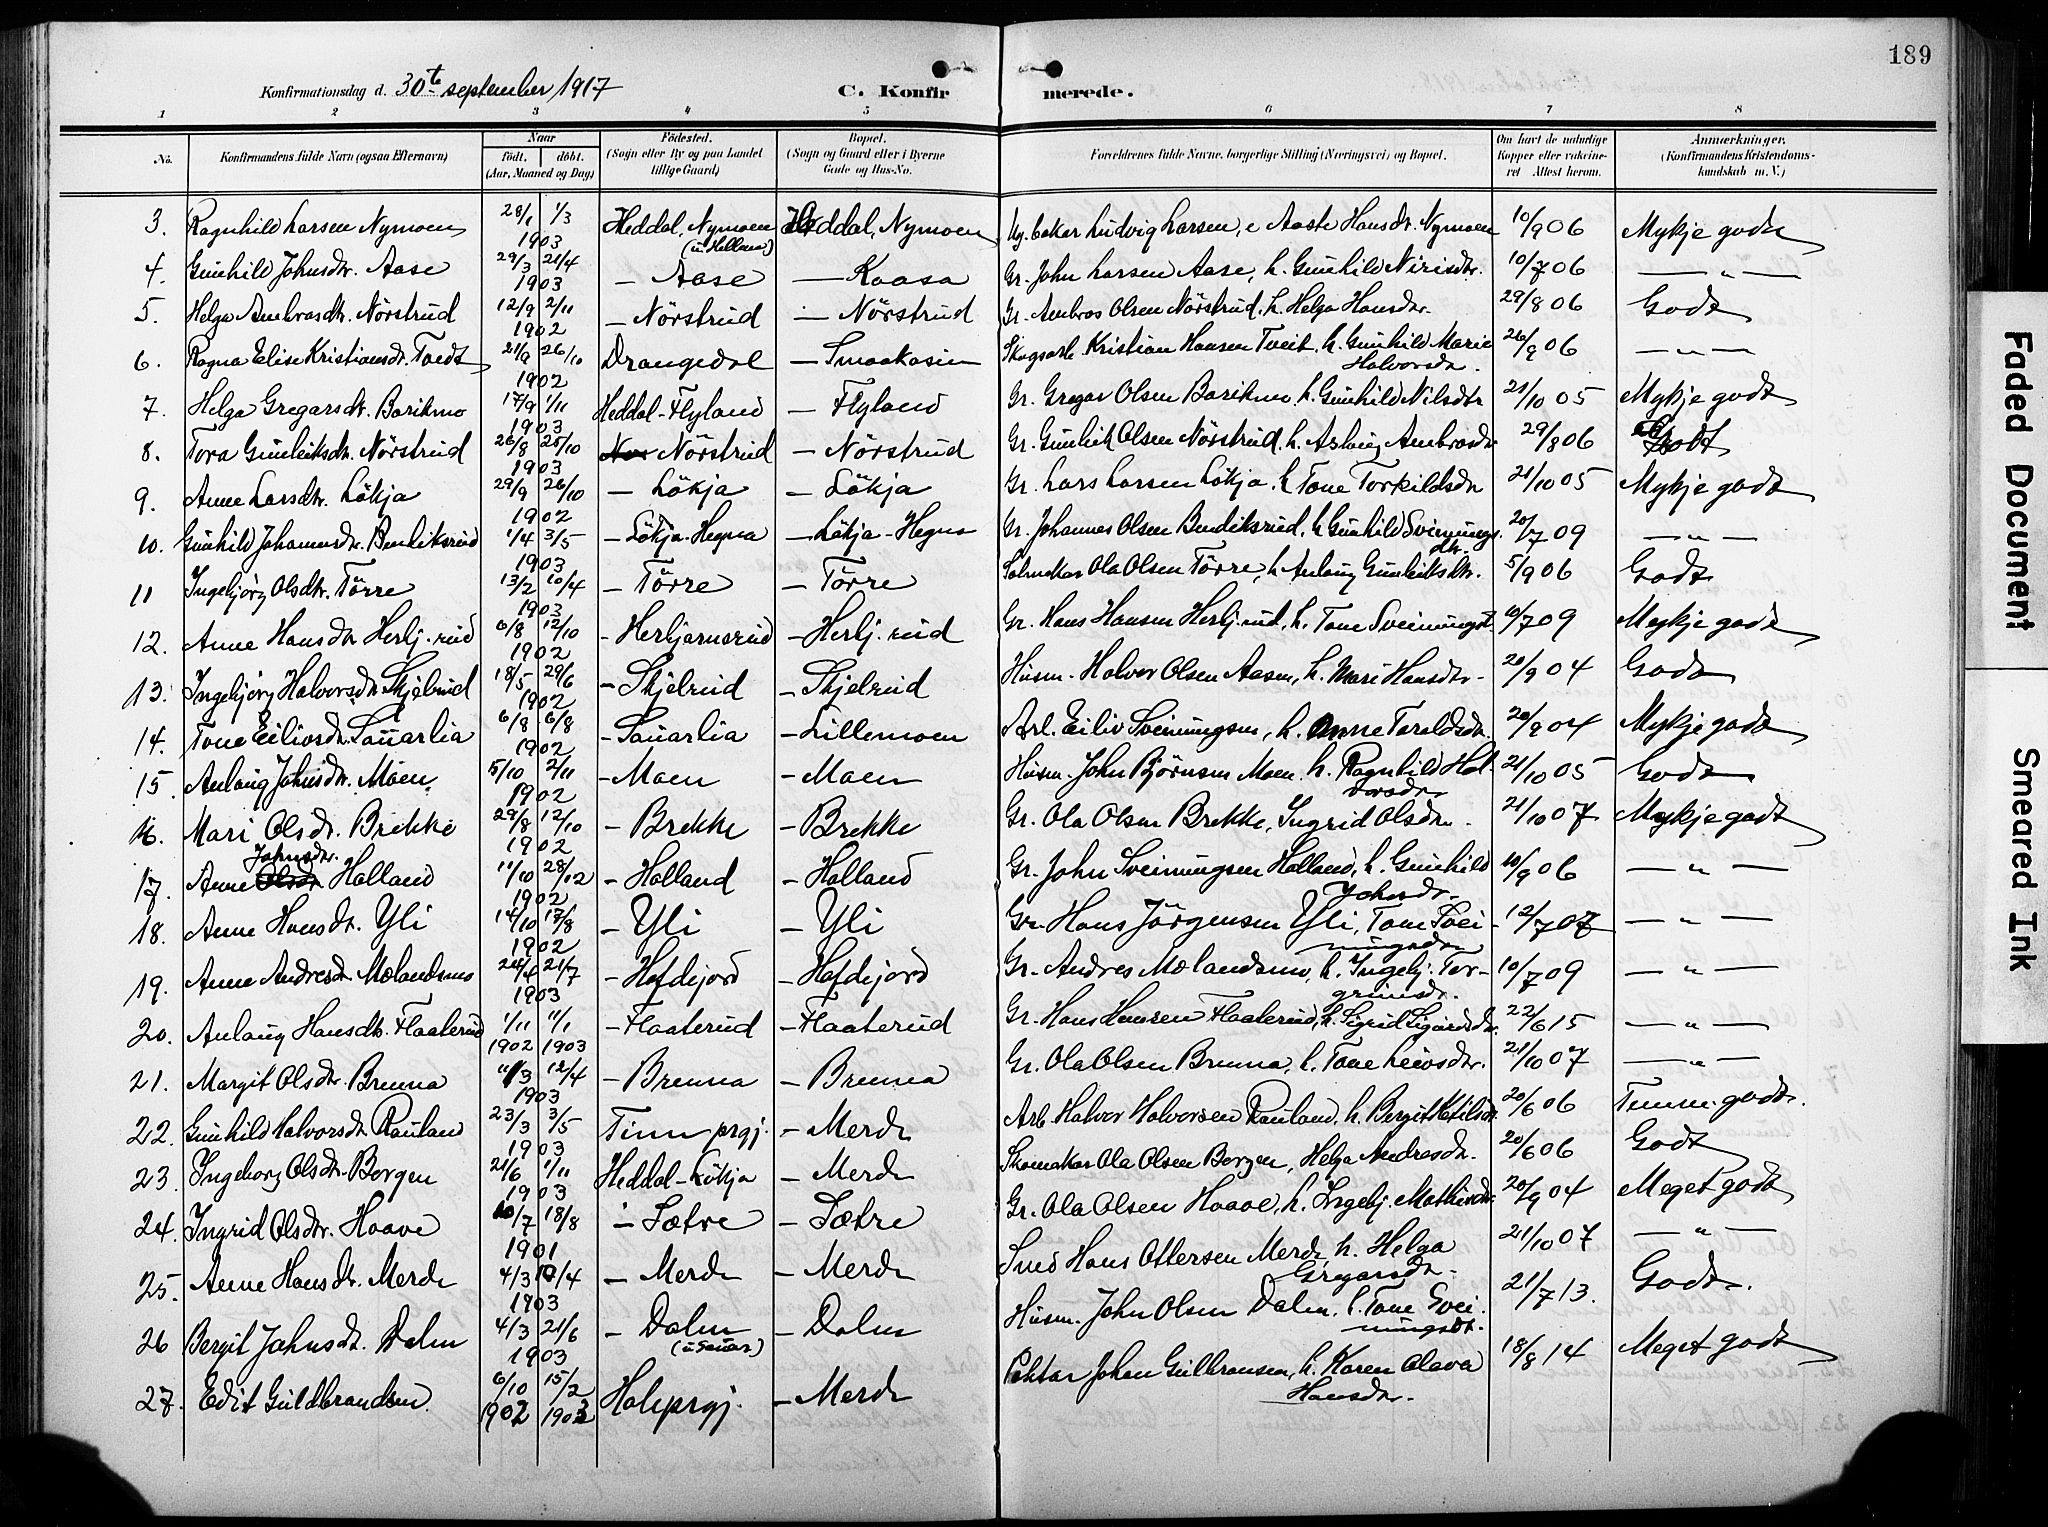 189
Konfirmationsdag d. 30te september 1917
C. Konfirmerede.
1 2 3 4 5 6 7 8
No. Konfirmandens fulde Navn (ogsaa Efternavn) Naar født. døbt. (Aar, Maaned og Dag) Fødested. (Sogn eller By og paa Landet tillige Gaard) Bopæl. (Sogn og Gaard eller i Byerne Gade og Hus-No. Forældrenes fulde Navne, borgerlige Stilling (Næringsvei) og Bopæl. Om havt de naturlige Kopper eller vakcineret. Attest herom. Anmærkninger. (Konfirmandens Kristendomskundskab m. V.)
3. Ragnhild Larsen Nymoen 28/1 1/3 1903 Heddal, Nymoen (u. Helland) Heddal, Nymoen baker Ludvig Larsen, e Aaste Hansdr. Nymoen 10/9 06 Mykje godt
4. Gunhild Johnsdr. Aase 29/3 21/4 1903 — Aase — Kaasa Gr. John Larsen Aase, h. Gunhild Nirisdr. 10/7 06 — " —
5. Helga Ambrosdr. Nörstrud 12/9 2/11 1902 — Nörstrud — Nörstrud Gr. Ambros Olsen Nörstrud, h. Helga Hansdr. 29/8 06 Godt
6. Ragna Elise Kristiansdr. Tveit 21/9 26/10 1902 Drangedal — Smaakasin Skogsarb. Kristian Hansen Tveit, h. Gunhild Marie Halvorsdr. 26/9 06 — " —
7. Helga Gregarsdr. Barikmo 17/9 1/11 1903 Heddal-Flyland — Flyland Gr. Gregar Olsen Barikmo, h. Gunhild Nilsdtr 21/10 05 Mykje godt
8. Tora Gunleiksdr. Nörstrud 26/8 25/10 1903 Nörstrud — Nörstrud Gr. Gunleik Olsen Nörstrud, h. Aslaug Ambrosdr 29/8 06 Godt
9. Anne Larsdtr. Lökja 29/9 26/10 1902 — Lökja — Lökja Gr. Lars Larsen Lökja, h Tone Torkildsdr 21/10 05 Mykje godt
10. Gunhild Johannesdr. Bendiksrud 1/4 3/5 1903 — Lökja-Hegna — Lökja-Hegna Gr. Johannes Olsen Bendiksrud, h Gunhild Sveinungsdtr. 20/7 09 — " —
11 Ingebjörg Olsdtr. Törre 13/2 10/4 1903 — Törre — Törre Salmakar Ola Olsen Törre, h Anlaug Gunleiksdtr. 5/9 06 Godt
12. Anne Hansdr Herbj.rud 6/8 12/10 1902 — Herbjørnsrud — Herbj.rud Gr. Hans Hansen Herbj.rud, h. Tone Sveinungsd. 10/7 09 Mykje godt
13. Ingebjörg Halvorsdr. Skjelrud 18/5 29/6 1902 — Skjelrud — Skjelrud Husm. Halvor Olsen Aasen, h. Mari Hansdtr. 20/9 04 Godt
14. Tone Eilivsdr. Sauarlia 6/8 6/8 1902 — Sauarlia — Lillemoen Arb. Eiliv Sveinungsen, h. Anne Toraldsdr. 20/9 04 Mykje godt
15. Anlaug Johnsdr. Moen 5/10 2/11 1902 — Moen — Moen Husm. John Björnsen Moen, h. Ragnhild Halvorsdr 21/10 05 Godt
16. Mari Olsdr. Brekke 29/8 12/10 1902 — Brekke — Brekke Gr. Ola Olsen Brekke, Ingrid Olsdr. 21/10 07 Mykje godt
17. Anne Johnsdr. Holland 11/10 28/12 1902 — Holland — Holland Gr. John Sveinungsen Holland, h. Gunhild Johnsdr. 10/9 06 — " —
18. Anne Hansdr. Yli 14/10 17/8 1902 — Yli — Yli Gr. Hans Jörgensen Yli, Tone Sveinungsdr 12/7 07 — " —
19. Anne Andresdr. Mælandsmo 24/4 21/7 1903 — Hofdejord — Hofdejord Gr. Andres Mælandsmo, h. Ingebj. Torgrimsdr. 10/7 09 — " —
20. Anlaug Hansdtr. Flaaterud 1/11 1902 11/1 1903 — Flaaterud — Flaaterud Gr. Hans Hansen Flaaterud, h. Sigrid Sigurdsdr. 22/6 15 — " —
21. Margit Olsdr. Brenna 11/3 12/4 1903 — Brenna — Brenna Gr. Ola Olsen Brenna, h. Tone Leivsdr. 21/10 07 — " —
22. Gunhild Halvorsdr Rauland 23/3 3/5 1903 Tinn prgj. — Merde Arb. Halvor Halvorsen Rauland, h. Bergit Ketilsdr 20/6 06 godt.
23. Ingeborg Olsdr. Borgen 21/6 1/11 1903 Heddal-Lökja — Merde Skomakar Ola Olsen Borgen, Helga Andresdr. 20/6 06 Godt
24. Ingrid Olsdr. Haave 10/7 18/8 1901 — Sætre — Sætre Gr. Ola Olsen Haave, h. Ingebj. Mathisdr. 20/9 04 Meget godt
25. Anne Hansdr. Merde 4/3 19/4 1903 — Merde — Merde Smed Hans Ottersen Merde, h. Helga Gregarsdr. 21/10 07 — " —
26 Bergit Johnsdr. Dalen 4/3 21/6 1903 — Dalen (u. Sauar) — Dalen Husm. John Olsen Dalen, h. Tone Sveinungsdr. 21/7 13. Godt.
27. Edit Guldbrandsen. 6/10 1902 15/2 1903 Holeprgj. — Merde Johan Gulbransen, h. Karen Olava Hansdr. 18/8 14 Meget godt
Faded Document
Smeared Ink